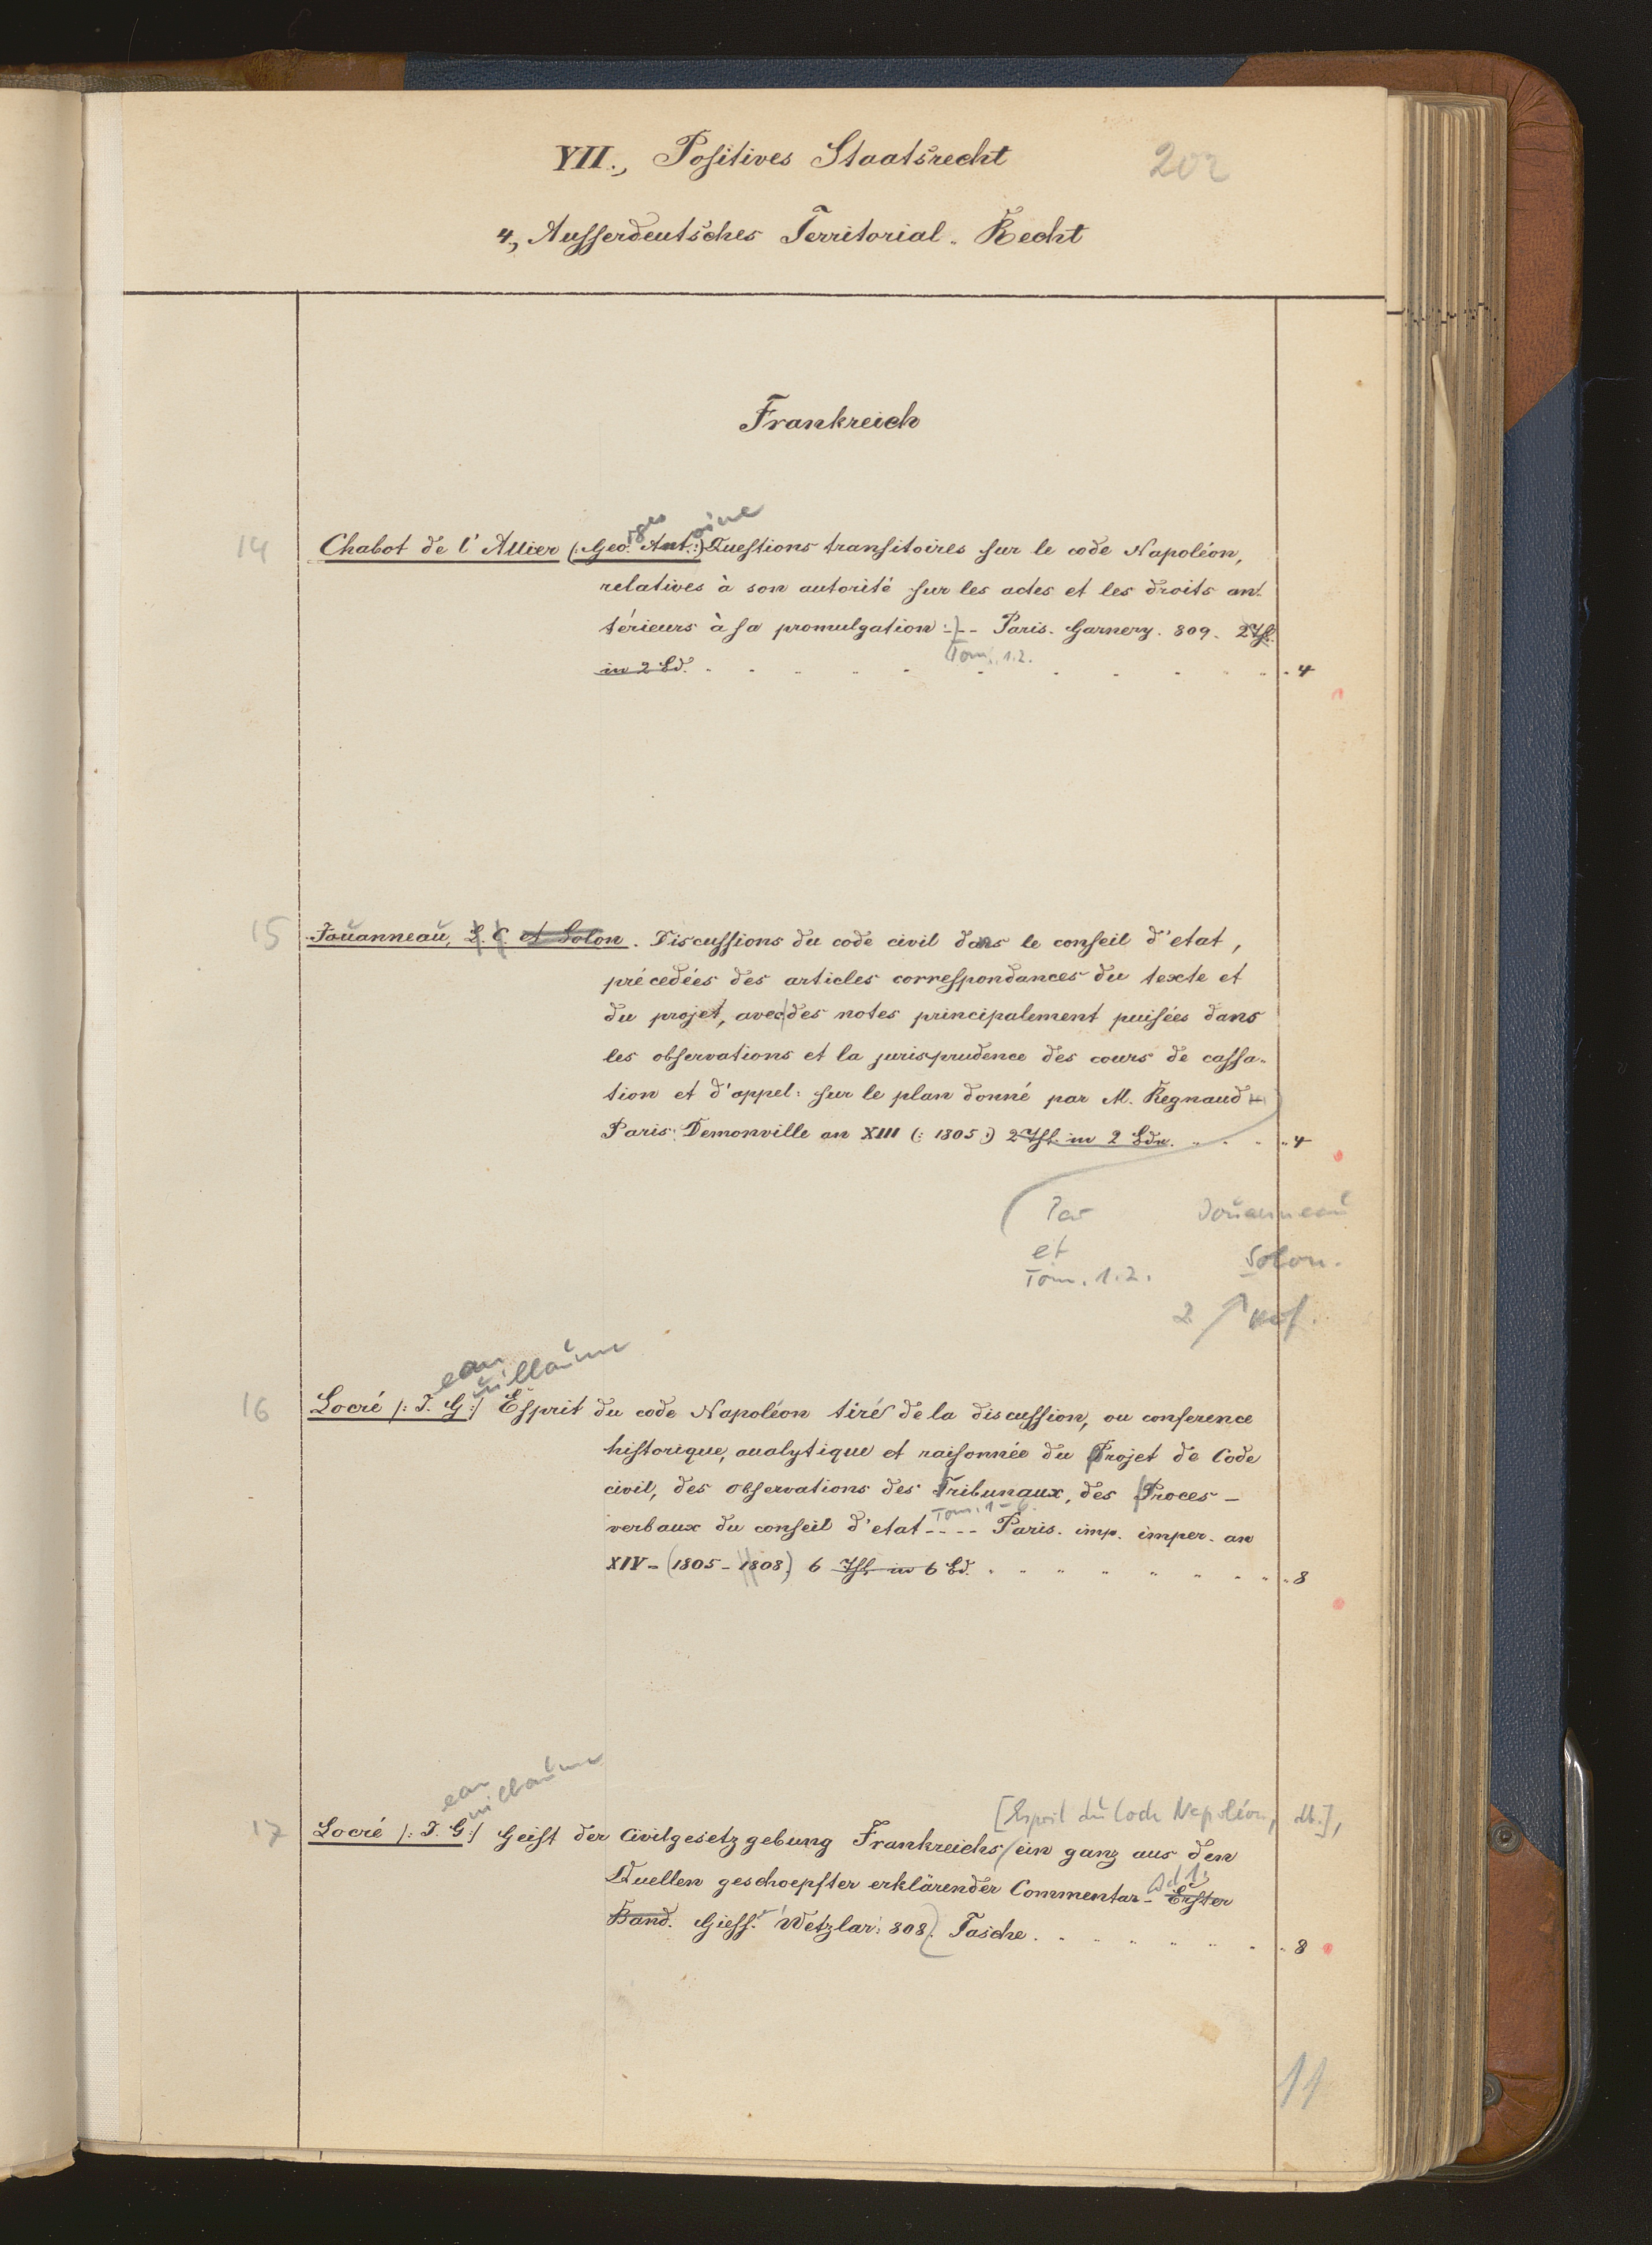 VII., Positives Staatsrecht
202
4, Ausserdeutsches Territorial-Recht
Frankreich
rges oine
14 Chabot de l'Allier (: Geo. Ant:) Questions transitoires sur le code Napoléon,
relatives à son autorité sur les actes et les droits an-
térieurs à sa promulgation :)-- Paris. Garnery. 809. 2 Thl.
Tom. 1.2.
in 2 Bd. 4
15 Joŭanneaŭ, L. C. et Solon. Discussions du code civil dans le conseil d'etat,
précedées des articles correspondances du texte et
du projet, avec des notes principalement puisées dans
les observations et la jurisprudence des cours de cassa-
tion et d'appel: sur le plan donné par M. Regnaud
Paris. Demonville an XIII (: 1805 :) 2 Thl. in 2 Bdn. 4
Par Joŭanneaŭ
et Solon.
Tom. 1.2.
2
ean ŭillaŭme
16 Locré /: J. G :/ Esprit du code Napoléon tiré de la discussion, ou conference
historique, analytique et raisonnée du Projet de Code
civil, des observations des Tribunaux, des Proces-
Tom. 1-6.
verbaux du conseil d'etat ---- Paris. imp. imper. an
XIV- (1805-1808) 6 Thl. in 6 Bd. 8
ean ŭillaŭme
[Esprit dŭ Code Napoléon, dt.],
17 Locré /: J. G :/ Geist der Civilgesetzgebung Frankreichs ein ganz aus den
Quellen geschoepfter erklärender Commentar- Erster
Bd 1.
Band. Giess. Wetzlar: 808. Tasche. 8
11